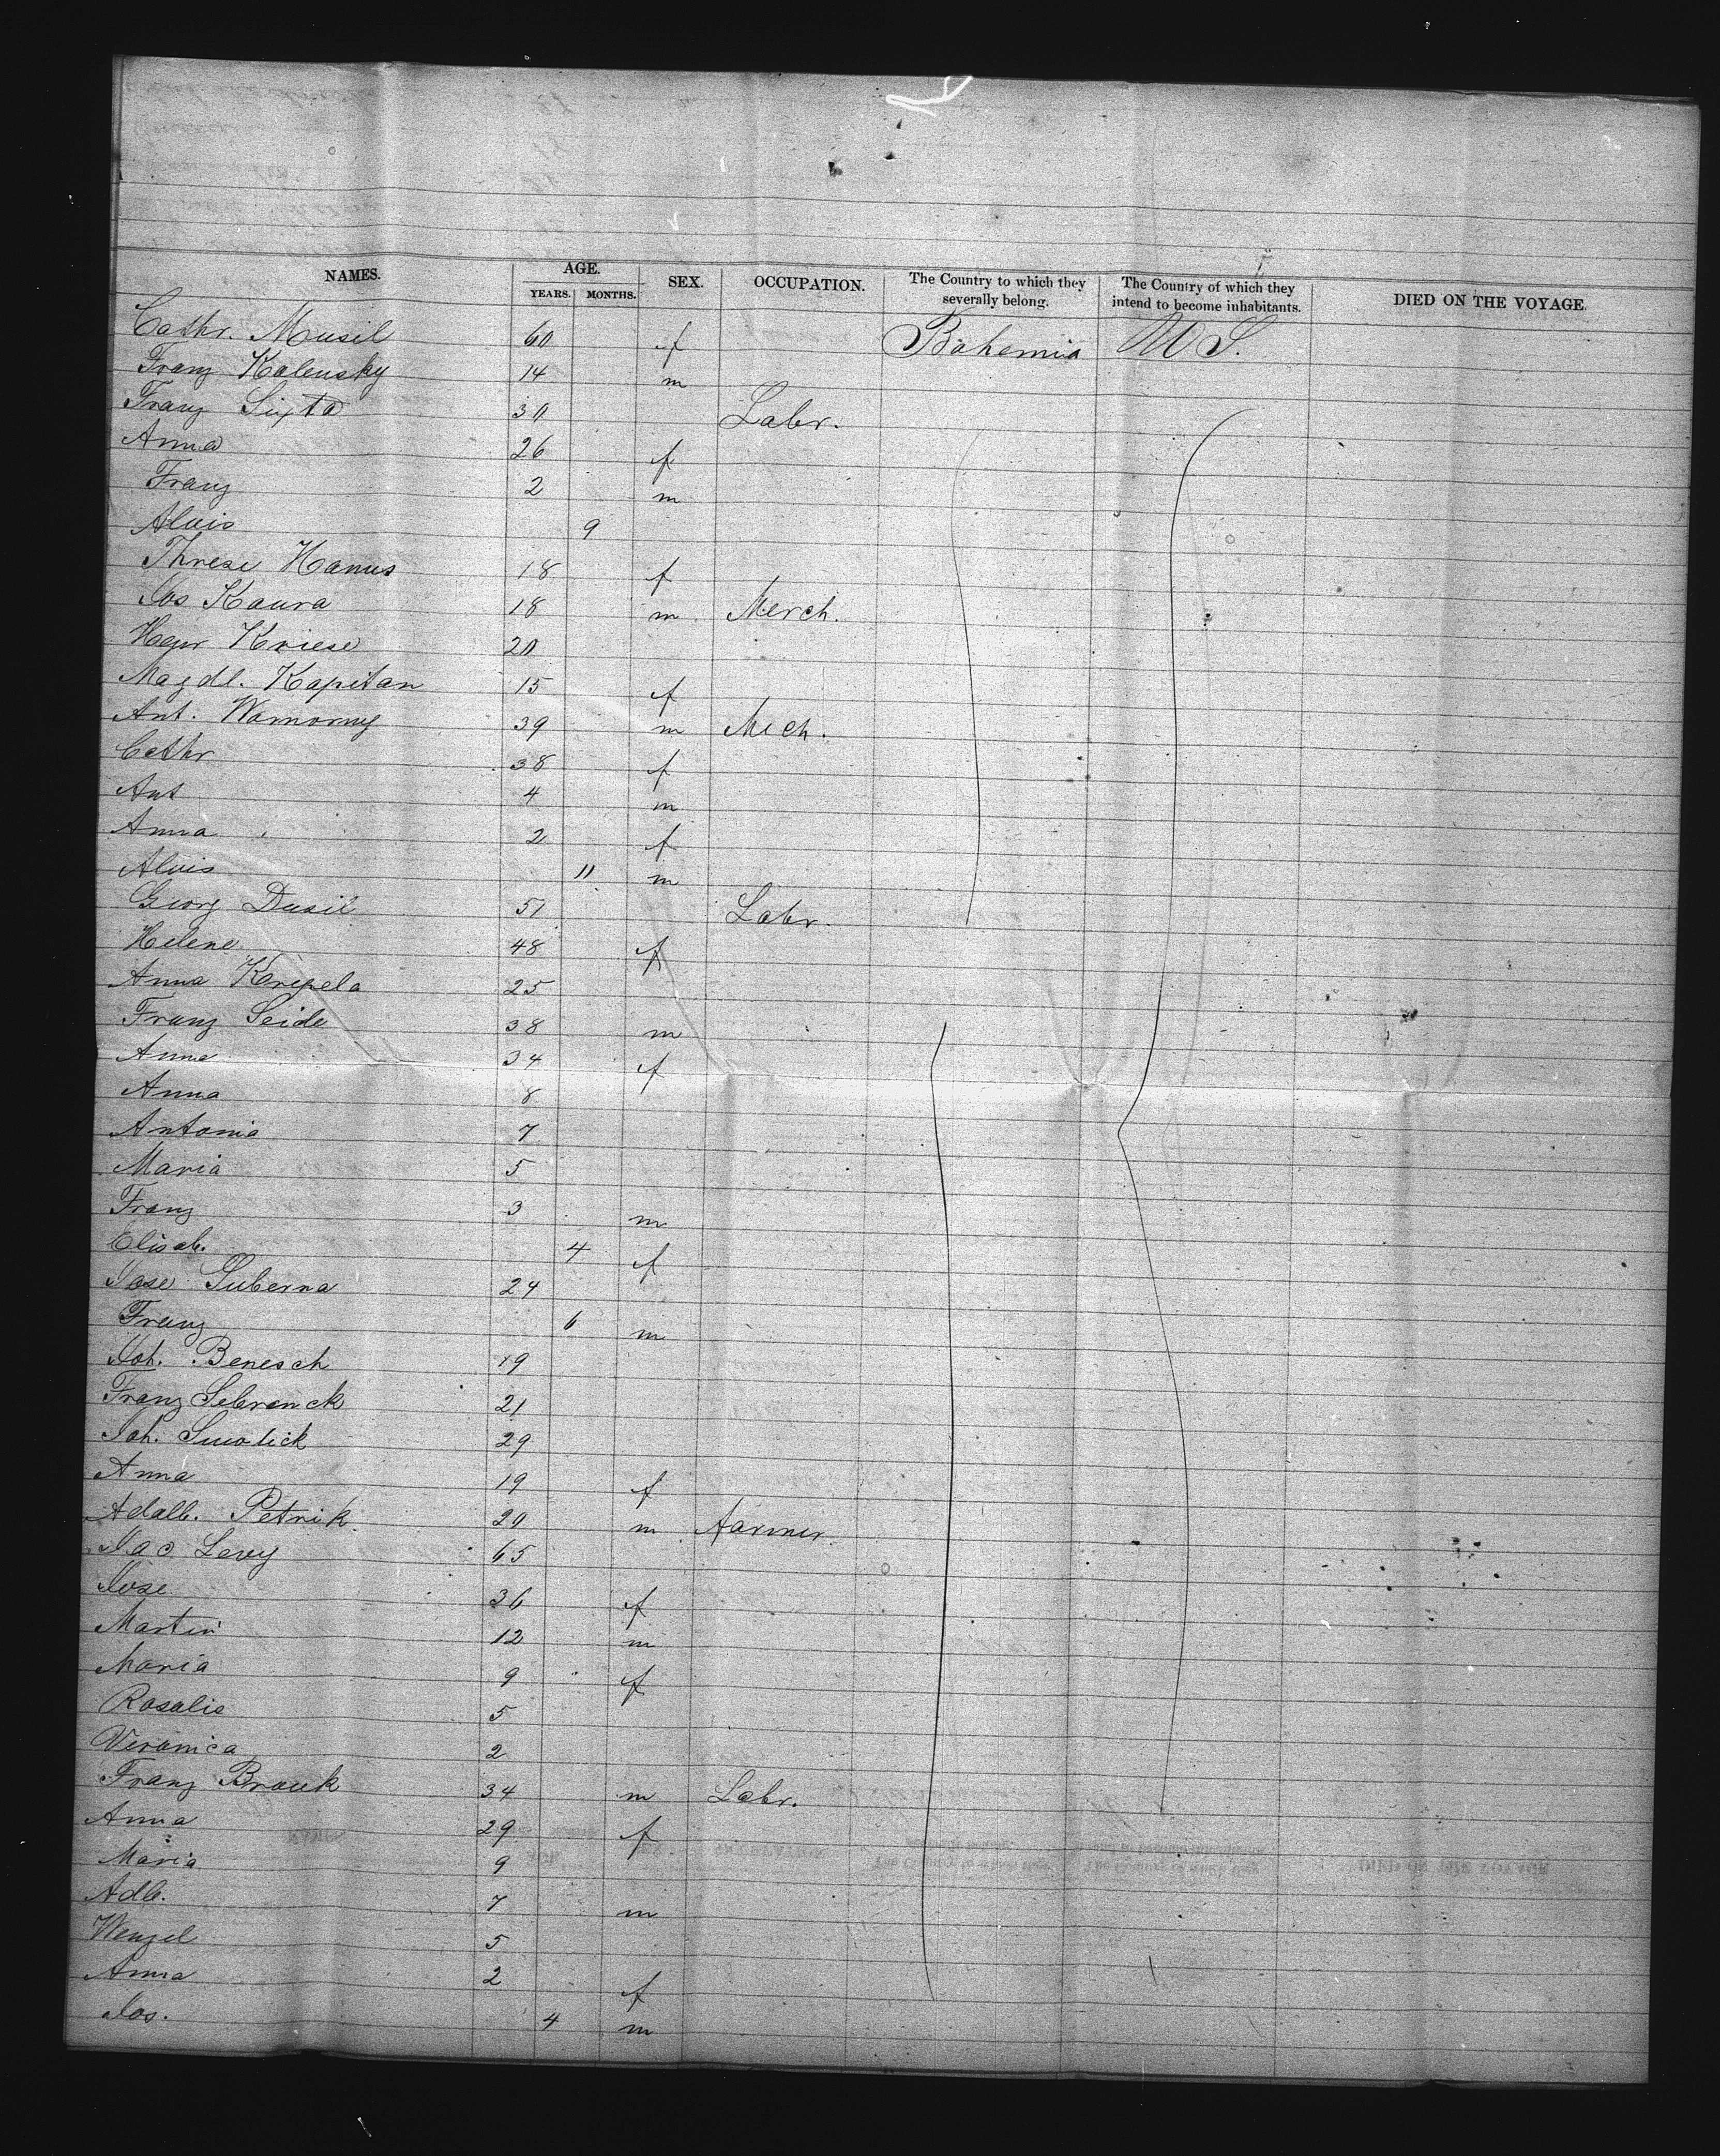 NAMES. AGE. YEARS. MONTHS. SEX. OCCUPATION. The Country to which they severally belong. The Country of which they intend to become inhabitants. DIED ON THE VOYAGE.
Cathr. Musil 60 f Bohemia U S.
Franz Kalensky 14 m
Franz Sixta 30 Labr.
Anna 26 f
Franz 2 m
Alois 9
Threse Hanus 18 f
Jos Kaura 18 m Merch.
20
Magdl. Kapitan 15 f
Ant. Wamorny 39 m Mech.
Cathr 38 f
Ant 4 m
Anna 2 f
Alois 11 m
Georg Dusil 51 Labr.
Helene 48 f
Anna Krepela 25
Franz Seide 38 m
Anna 34 f
Anna 8
Antonia 7
Maria 5
Franz 3 m
Elisab. 4 f
Jose Guberna 24
Franz 6 m
Joh. Benesch 19
Franz Sebranck 21
Joh. Smolick 29
Anna 19 f
Adalb. Petrik 20 m farmer
Jac Levy 65
Jose 36 f
Martin 12 m
Maria 9 f
Rosalie 5
Veronica 2
Franz Brouk 34 m Labr.
Anna 29 f
Maria 9
Adlb. 7 m
Wenzel 5
Anna 2 f
Jos. 4 m